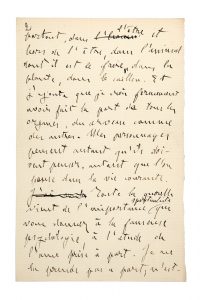 partout, dans l'être et
hors de l'être, dans l'animal
dont il est le frère, dans la
plante, dans le caillou. Et
j'ajoute que je crois fermement
avoir fait la part de tous les
organes, du cerveau comme
des autres. Mes personnages
pensent autant qu'ils doi-
vent penser, autant que l'on
pense dans la vie courante.
Toute la querelle
spiritualiste
vient de l'importance que
vous donnez à la fameuse
psychologie, à l'étude de
l'âme prise à part. Je ne
la prends pas à part, n'est-